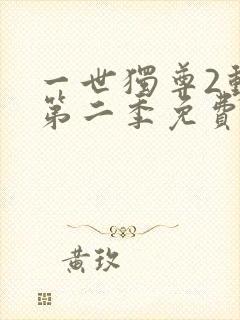 一世獨尊2
第二季免費
黃玫